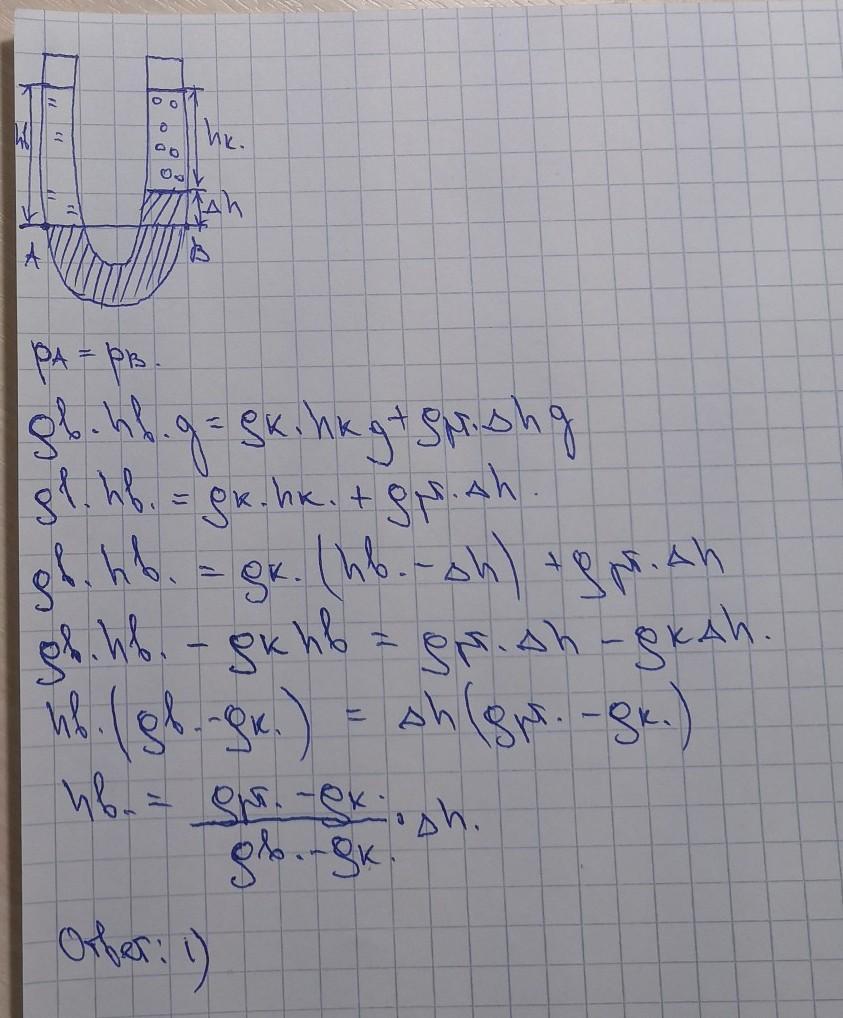 hв
hк.
Δh
A
B
pA = pB.
ρв. hв. g = ρк. hк g + ρрт. Δh g
ρв. hв. = ρк. hк. + ρрт. Δh.
ρв. hв. = ρк. (hв. - Δh) + ρрт. Δh
ρв. hв. - ρк hв = ρрт. Δh - ρк Δh.
hв. (ρв. - ρк.) = Δh (ρрт. - ρк.)
hв. = (ρрт. - ρк.) / (ρв. - ρк.) · Δh.
Ответ: 1)